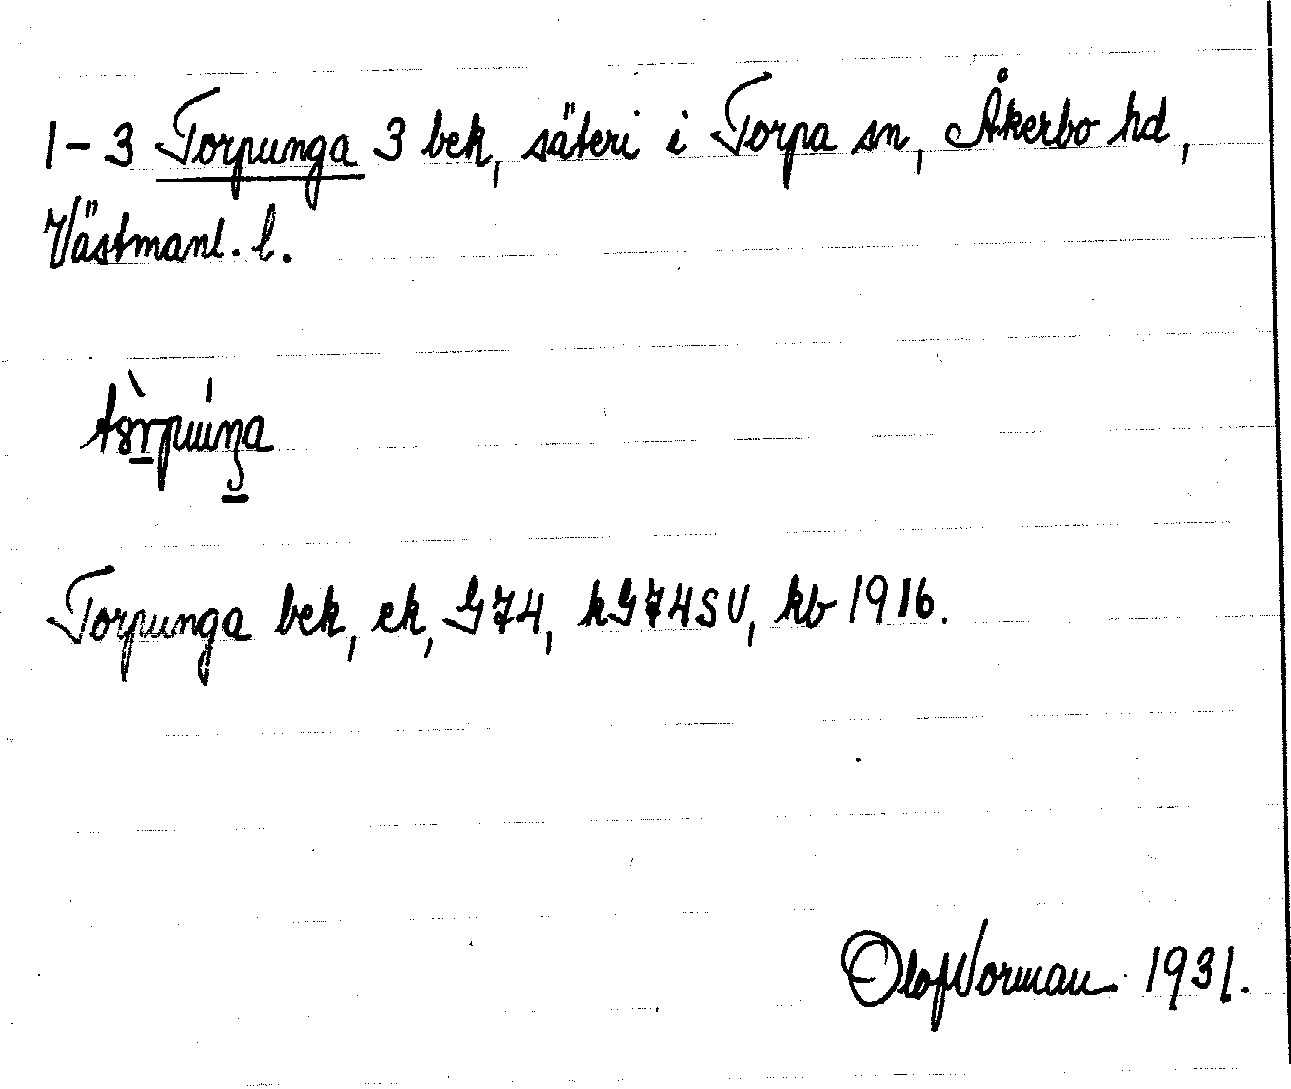 1-3 Torpunga 3 bek, säteri i Torpa sn, Åkerbo hd,
Västmanl. l.
Torpunga bek, ek, G74, kG74SV, kb 1916.
Olof Norman 1931.